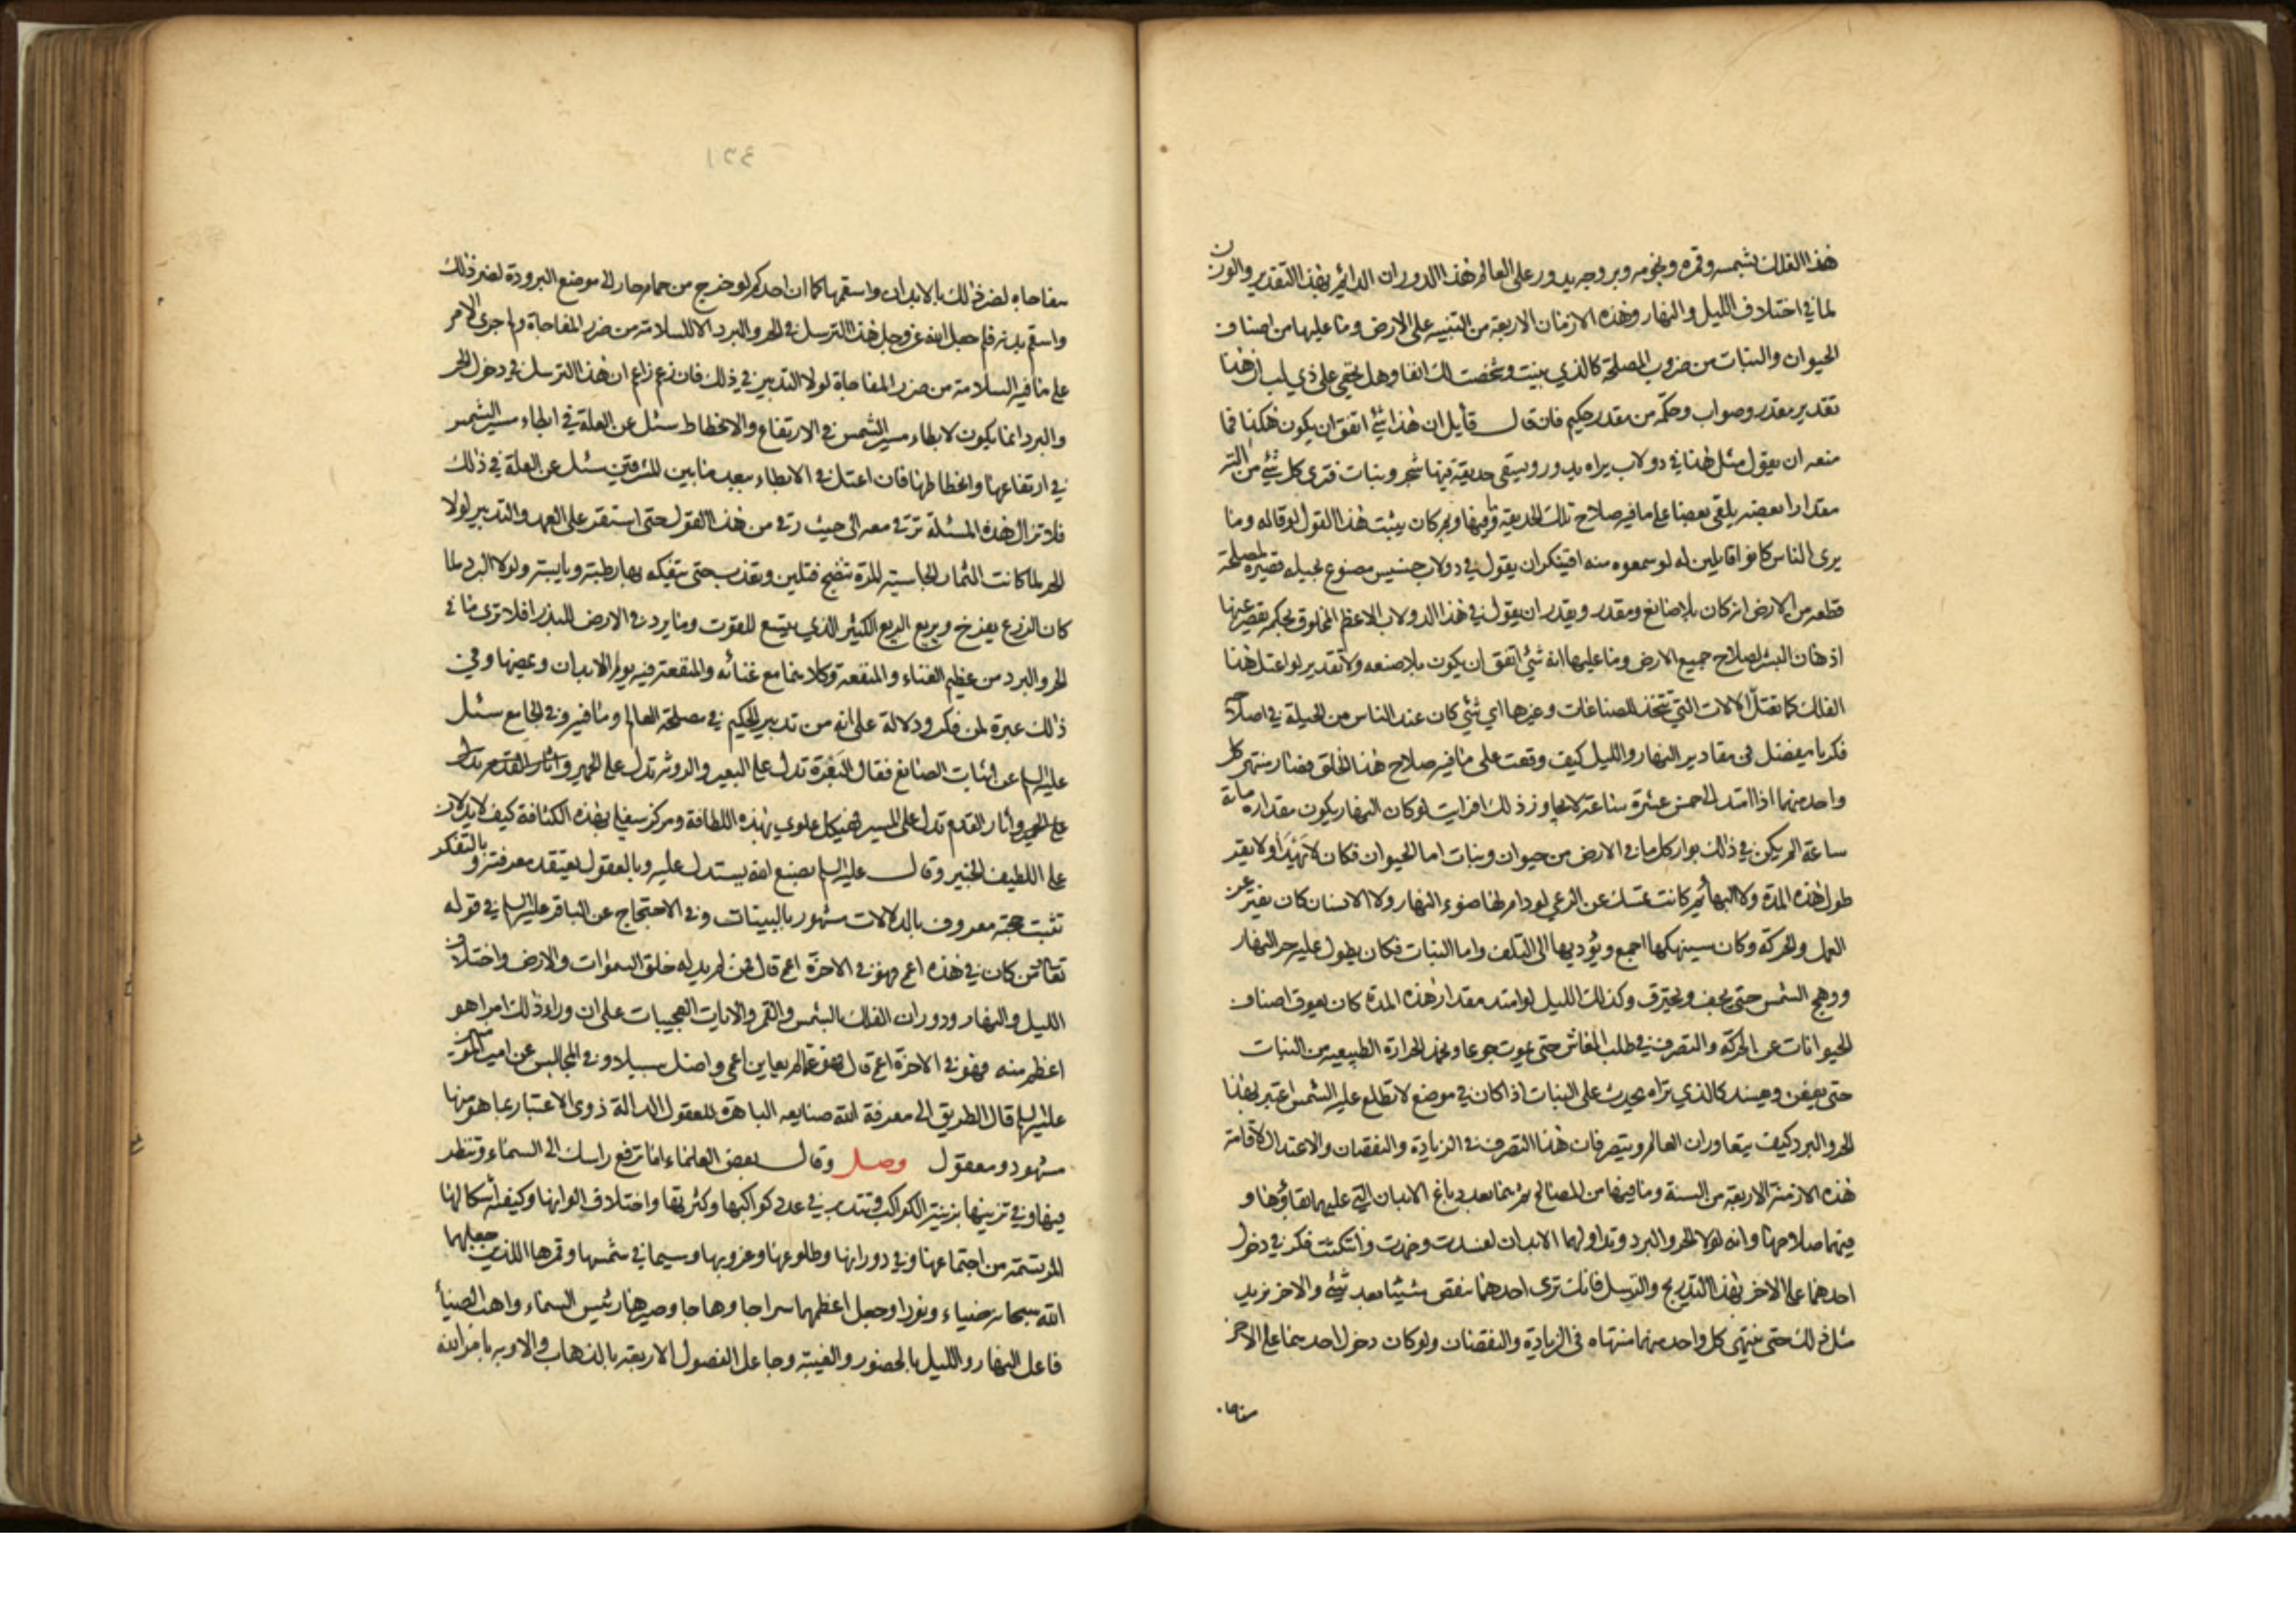 هذا الفلك بشمسه وقمره ونجومه وبروجه يدور على العالم هذا الدوران الدائم بهذا التقدير والوزن
لما في اختلاف الليل والنهار وهذه الازمان الاربعة من التنبيه على الارض وما عليها من اصناف
الحيوان والنبات من ضروب المصلحة كالذي بينت وشخصت لك انفا وهل يخفى على ذي لب ان هذا
تقدير مقدر وصواب وحكمة من مقدر حكيم فان قال قايل ان هذا شئ اتفق ان يكون هكذا فما
منعه ان يقول مثل هذا في دولاب يراه يدور ويسقي حديقة فيها شجر ونبات فترى كل شئ من الته
مقدارا بعضه يلقى بعضا على ما فيه صلاح تلك الحديقة وما فيها وبم كان يثبت هذا القول لو قاله وما
يرى الناس كانوا قايلين له لو سمعوه منه افينكر ان يقول في دولاب خسيس مصنوع بحيلة قصيرة لمصلحة
قطعة من الارض انه كان بلا صانع ومقدر ويقدر ان يقول في هذا الدولاب الاعظم المخلوق بحكمة تقصر عنها
اذهان البشر لصلاح جميع الارض وما عليها انه شئ اتفق ان يكون بلا صنعه ولا تقدير لو اعتل هذا
الفلك كما تعتل الالات التي تتخذ للصناعات وغيرها اي شئ كان عند الناس من الحيلة في اصلاحه
فكر يا مفضل في مقادير النهار والليل كيف وقعت على ما فيه صلاح هذا الخلق فصار منتهى كل
واحد منهما اذا امتد الى خمس عشرة ساعة لا يجاوز ذلك افرايت لو كان النهار يكون مقداره مائة
ساعة الم يكن في ذلك بوار كل ما في الارض من حيوان ونبات اما الحيوان فكان لا يهدا ولا يقر
طول هذه المدة ولا البهائم كانت تمسك عن الرعي لو دام لها ضوء النهار ولا الانسان كان يفتر عن
العمل والحركة وكان سينهكها اجمع ويؤديها الى التلف واما النبات فكان يطول عليه حر النهار
ووهج الشمس حتى يجف ويحترق وكذلك الليل لو امتد مقدار هذه المدة كان يعوق اصناف
الحيوانات عن الحركة والتصرف في طلب المعاش حتى تموت جوعا وتخمد الحرارة الطبيعية من النبات
حتى يعفن ويفسد كالذي تراه يحدث على النبات اذا كان في موضع لا تطلع عليه الشمس اعتبر بهذا
الحر والبرد كيف يتعاوران العالم ويتصرفان هذا التصرف في الزيادة والنقصان والاعتدال لاقامة
هذه الازمنة الاربعة من السنة وما فيها من المصالح ثم هما بعد دباغ الابدان التي عليهما بقاؤها و
فيهما صلاحها وانه لولا الحر والبرد وتداولهما الابدان لفسدت وخوت وانتكثت فكر في دخول
احدهما على الاخر بهذا التدريج والترسل فانك ترى احدهما ينقص شيئا بعد شئ والاخر يزيد
مثل ذلك حتى ينتهي كل واحد منهما منتهاه في الزيادة والنقصان ولو كان دخول احديهما على الاخر
مفاجاه
١٣٤
مفاجاه لضر ذلك بالابدان واسقمها كما ان احدكم لو خرج من حمام حار الى موضع البرودة لضره ذلك
واسقم بدنه فلم جعل الله عز وجل هذا الترسل في الحر والبرد الا للسلامة من ضرر المفاجاة ولم جرى الامر
على ما فيه السلامة من ضرر المفاجاة لولا التدبير في ذلك فان زعم زاعم ان هذا الترسل في دخول الحر
والبرد انما يكون لابطاء مسير الشمس في الارتفاع والانحطاط سئل عن العلة في ابطاء مسير الشمس
في ارتفاعها وانحطاطها فان اعتل في الابطاء ببعد ما بين المشرقين سئل عن العلة في ذلك
فلا تزال هذه المسئلة ترقى معه الى حيث رقى من هذا القول حتى استقر على العمد والتدبير لولا
الحر لما كانت الثمار الجاسية المرة تنضج فتلين وتعذب حتى يتفكه بها رطبة ويابسة ولولا البرد لما
كان الزرع يفرخ ويريع الريع الكثير الذي يتسع للقوت وما يرد في الارض للبذر افلا ترى ما في
الحر والبرد من عظيم الغناء والمنفعة وكلاهما مع غنائه والمنفعة فيه يولم الابدان ويمضها وفي
ذلك عبرة لمن فكر ودلالة على انه من تدبير الحكيم في مصلحة العالم وما فيه وفي الجامع سئل
عليه السلام عن اثبات الصانع فقال البعرة تدل على البعير والروثة تدل على الحمير واثار القدم تدل
على الحمير واثار القدم تدل على المسير فهيكل علوي بهذه اللطافة ومركز سفلي بهذه الكثافة كيف لا يدلان
على اللطيف الخبير وقال عليه السلام بصنع الله يستدل عليه وبالعقول يعتقد معرفته وبالتفكر
تثبت حجته معروف بالدلالات مشهور بالبينات وفي الاحتجاج عن الباقر عليه السلام في قوله
تعالى من كان في هذه اعمى فهو في الاخرة اعمى قال فمن لم يدله خلق السموات والارض واختلاف
الليل والنهار ودوران الفلك بالشمس والقمر والايات العجيبات على ان وراء ذلك امرا هو
اعظم منه فهو في الاخرة اعمى قال فهو عما لم يعاين اعمى واضل سبيلا وفي المجالس عن امير المؤمنين
عليه السلام قال الطريق الى معرفة الله صنايعه الباهرة للعقول الدالة ذوى الاعتبار بما هو منها
مشهود ومعقول وصل وقال بعض العلماء اما ترفع راسك الى السماء وتنظر
فيها وفي تزيينها بزينة الكواكب وتتدبر في عدد كواكبها وكثرتها واختلاف الوانها وكيفية اشكالها
المرتسمة من اجتماعها وفي دورانها وطلوعها وغروبها وسيما في شمسها وقمرها اللذين جعلهما
الله سبحانه ضياء ونورا وجعل اعظمهما سراجا وهاجا وصيرها رئيس السماء واهب الضياء
فاعل النهار والليل بالحضور والغيبة وجاعل الفصول الاربعة بالذهاب والاوبه بامر الله